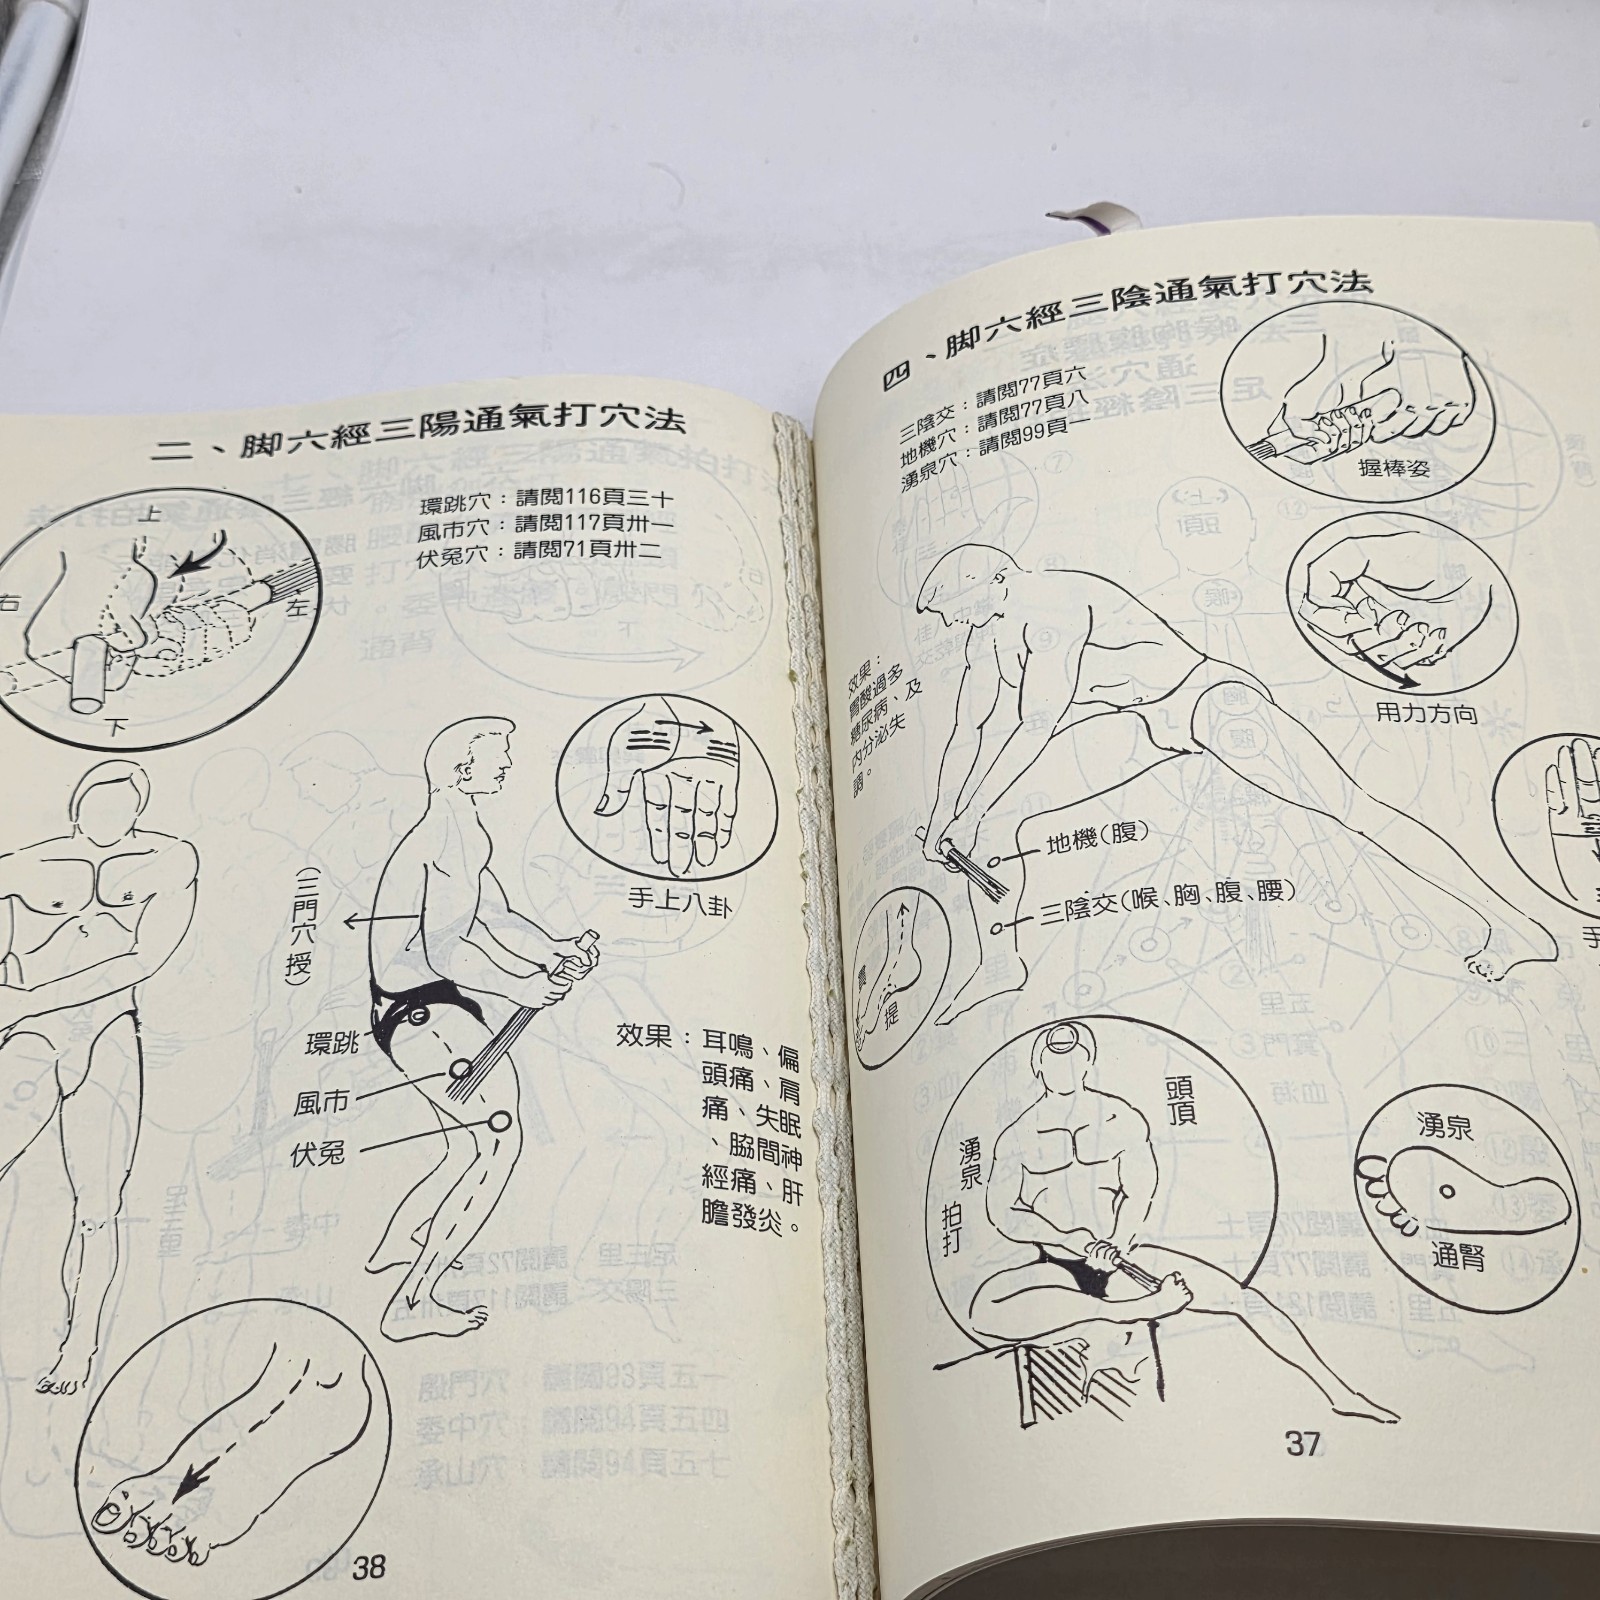 四、脚六經三陰通氣打穴法
三陰交：請閱77頁六
地機穴：請閱77頁八
湧泉穴：請閱99頁一
握棒姿
用力方向
效果：
胃酸過多
糖尿病、及
內分泌失
調。
地機(腹)
三陰交(喉、胸、腹、腰)
提
手
頭頂
湧泉
拍打
湧泉
通腎
37
二、脚六經三陽通氣打穴法
環跳穴：請閱116頁三十
風市穴：請閱117頁卅一
伏兔穴：請閱71頁卅二
上
右
左
下
手上八卦
(三門穴授)
環跳
風市
伏兔
效果：耳鳴、偏
頭痛、肩
痛、失眠
、脇間神
經痛、肝
膽發炎。
38